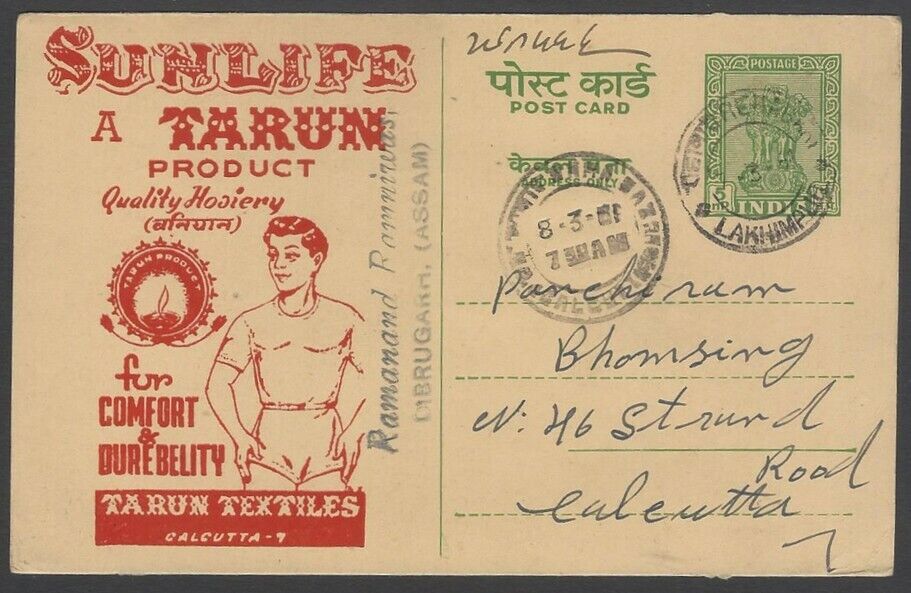 SUNLIFE
A TARUN
PRODUCT
Quality Hosiery
(बनियान)
TARUN PRODUCT
for
COMFORT
&
DUREBELITY
TARUN TEXTILES
CALCUTTA-7
Ramanand Ramniwas,
DIBRUGARH, (ASSAM)
पोस्ट कार्ड
POST CARD
केवल पता
ADDRESS ONLY
POSTAGE
5
INDIA
LAKHIMPUR
8-3-61
BARA BAZAR
Panchiram
Bhomsing
N. 46 Strand
Road
Calcutta
7